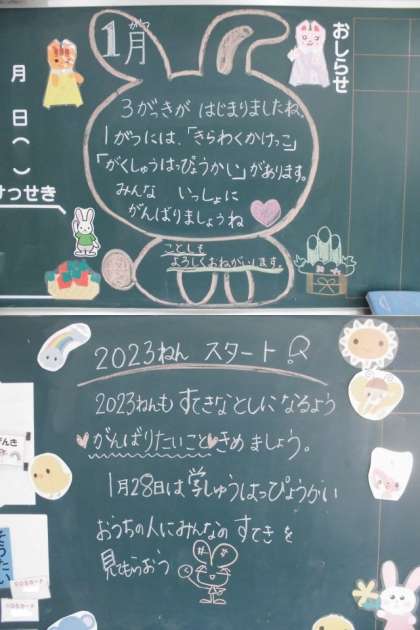 1月
がつ
おしらせ
月
日
（ ）
けっせき
3がっきが はじまりましたね。
1がつには、「きらわくかけっこ」
「がくしゅうはっぴょうかい」があります。
みんな いっしょに
がんばりましょうね
ことしも
よろしくおねがいします。
2023ねん スタート
2023ねんも すてきなとしになるよう
がんばりたいこと きめましょう。
1月28日は学しゅうはっぴょうかい
おうちの人にみんなの すてきを
見てもらおう